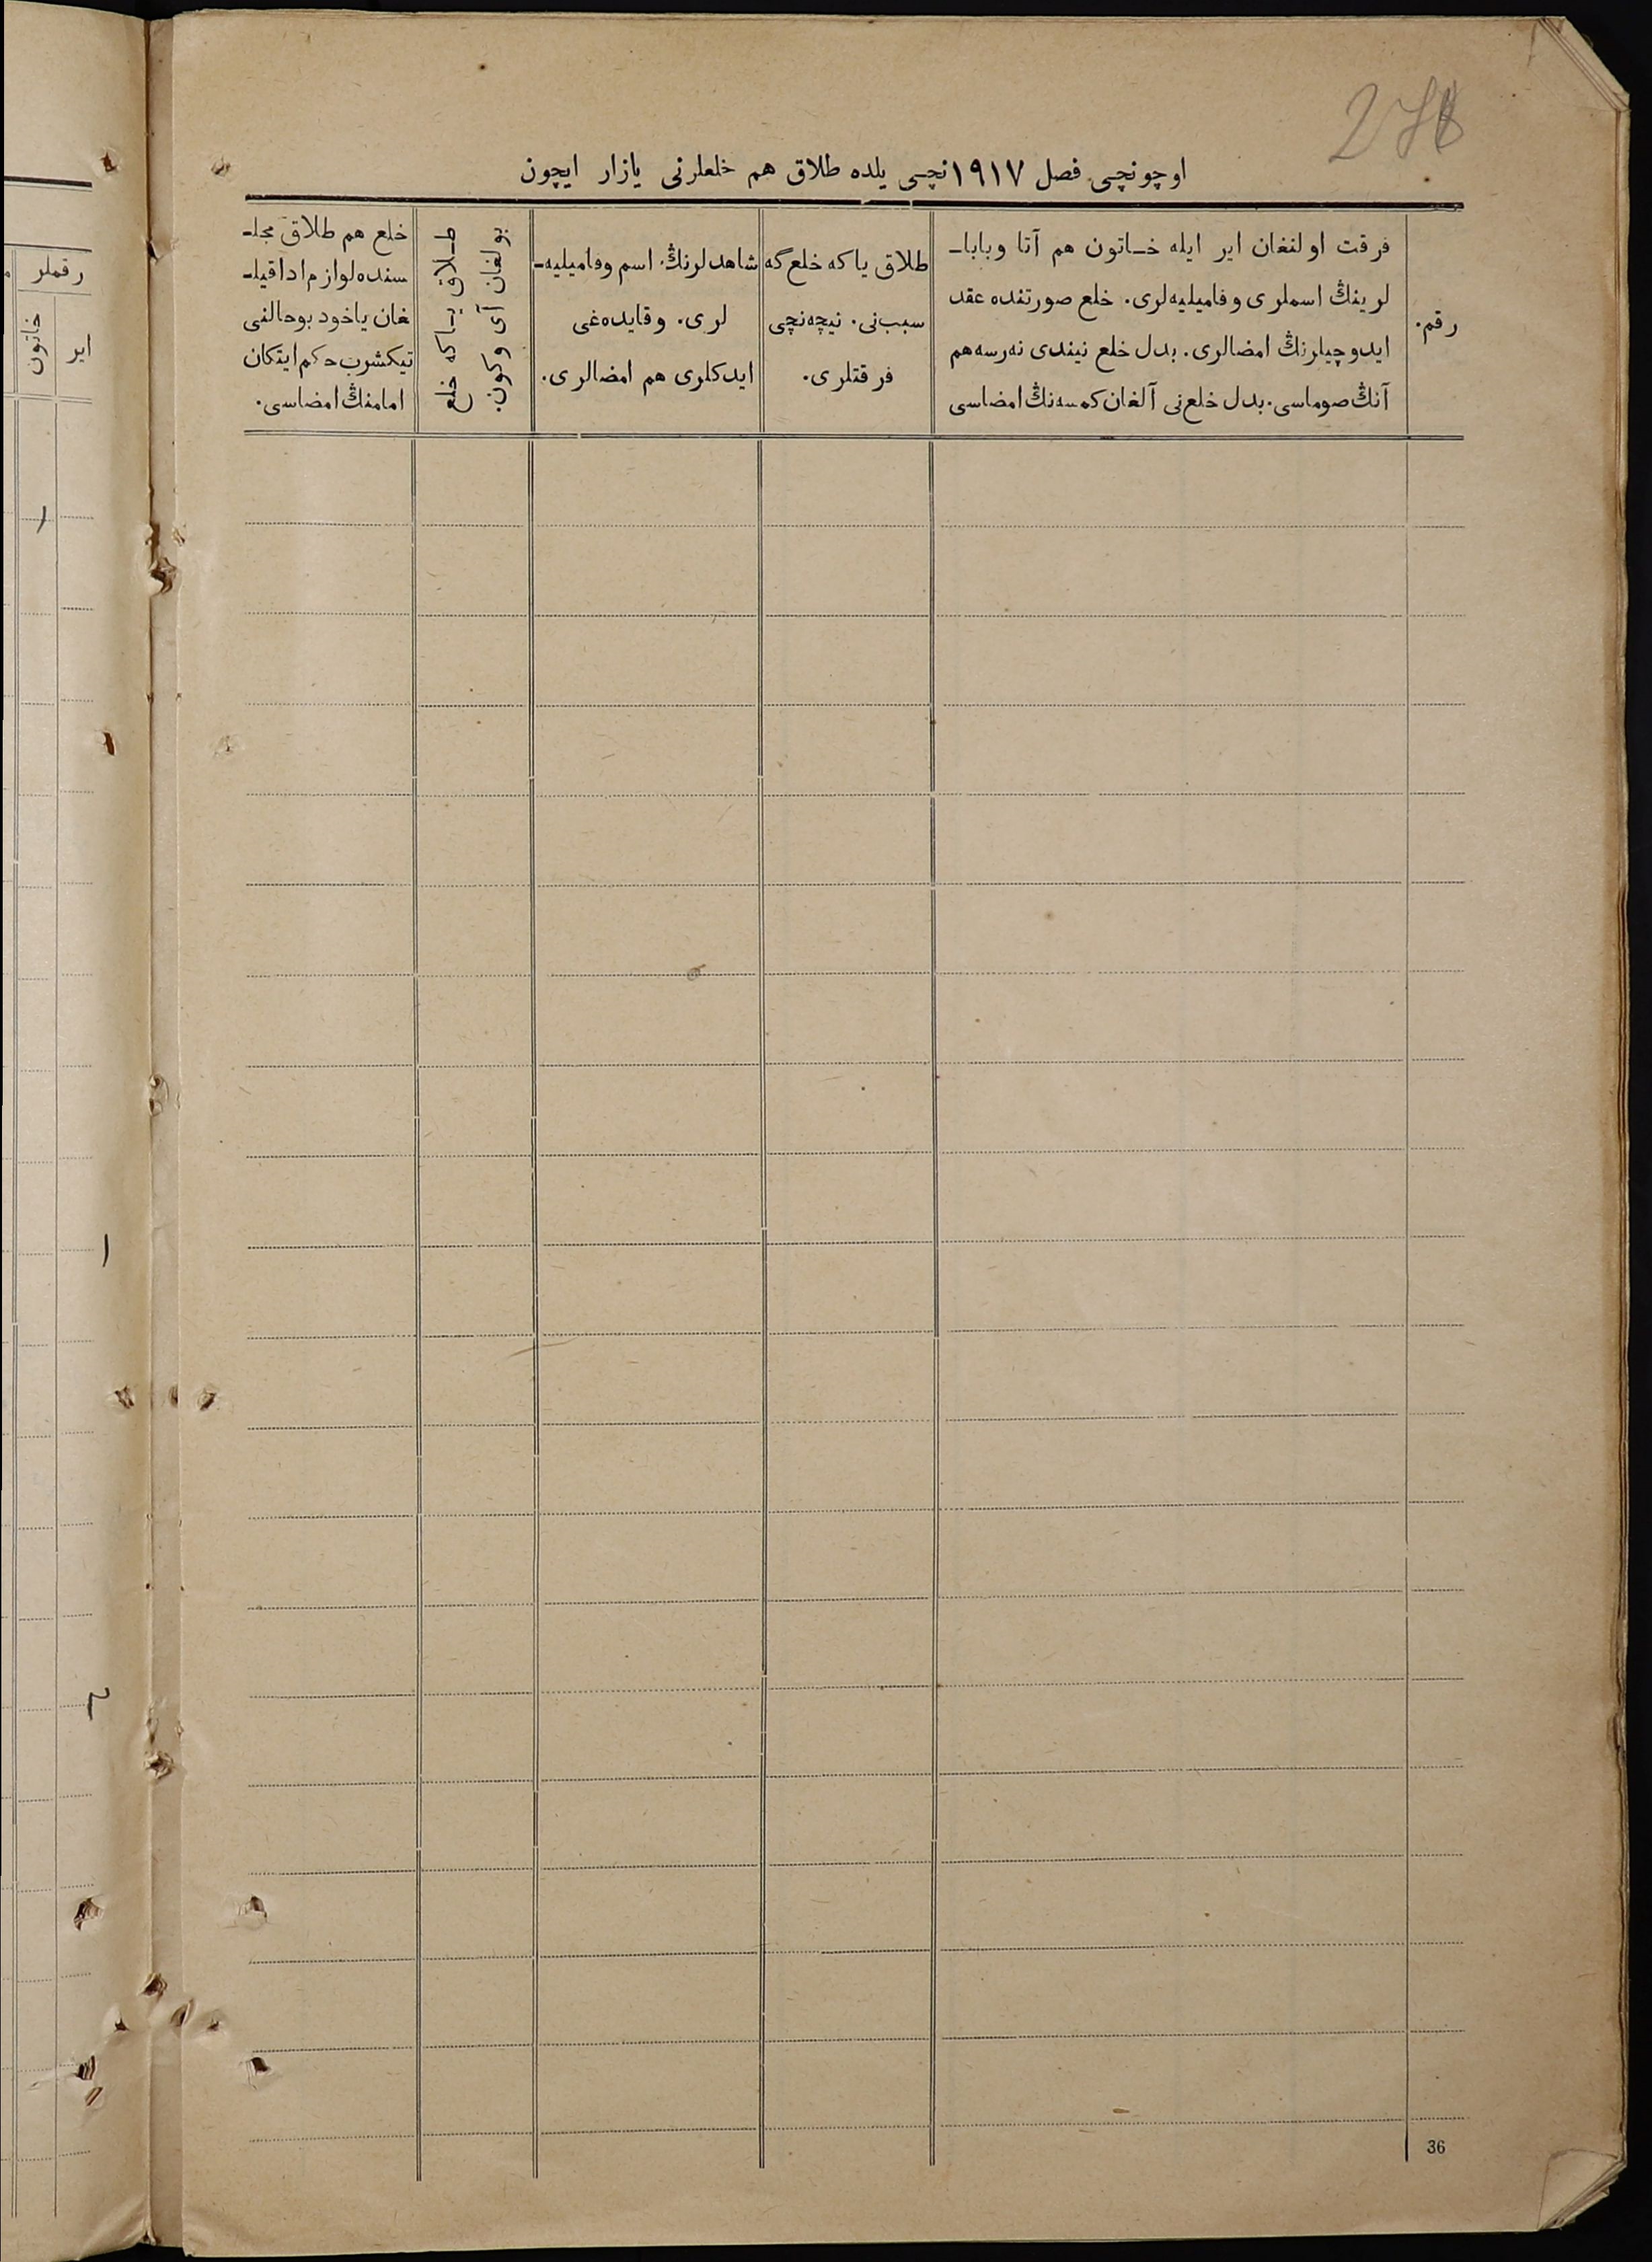 اوچونچی فصل ۱۹۱۷نچی یلده طلاق هم خلعلرنی یازار ایچون
رقم.
فرقت اولنغان ایر ایله خاتون هم آتا وبابا-
لرینڭ اسملری وفامیلیه‌لری. خلع صورتنده عقد
ایدوچیلرنڭ امضالری. بدل خلع نیندی نه‌رسه‌هم
آنڭ صوماسی. بدل خلع‌نی آلغان کمسه‌نڭ امضاسی
طلاق یاکه خلع‌گه
سبب‌نی. نیچه‌نچی
فرقتلری.
شاهدلرنڭ اسم وفامیلیه-
لری. وقایده‌غی
ایدکلری هم امضالری.
طلاق یاکه خلع
بولغان آی وکون.
خلع هم طلاق مجلـ
سنده لوازم ادا قیلـ
غان یاخود بوحالنی
تیکشرب حکم ایتکان
امامنڭ امضاسی.
رقملر
ایر
خاتون
۱
۱
۲
36